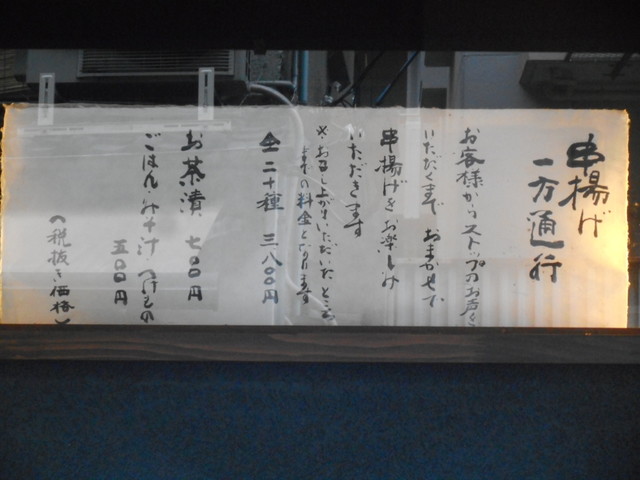 串揚げ
一方通行
お客様からストップのお声を
いただくまで おまかせで
串揚げをお楽しみ
いただきます
※お召し上がりいただいたところ
までの料金となります
全二十種 三八〇〇円
お茶漬 七〇〇円
ごはん・みそ汁 つけもの
五〇〇円
(税抜き価格)